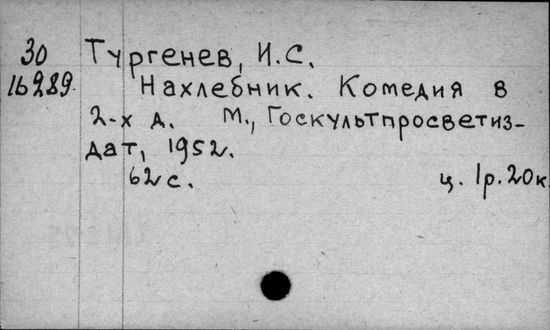 30 Тургенев, И.С.
16289. Нахлебник. Комедия в
2-х д. М., Госкультпросветиз-
дат, 1952.
62с. ц. 1р.20к